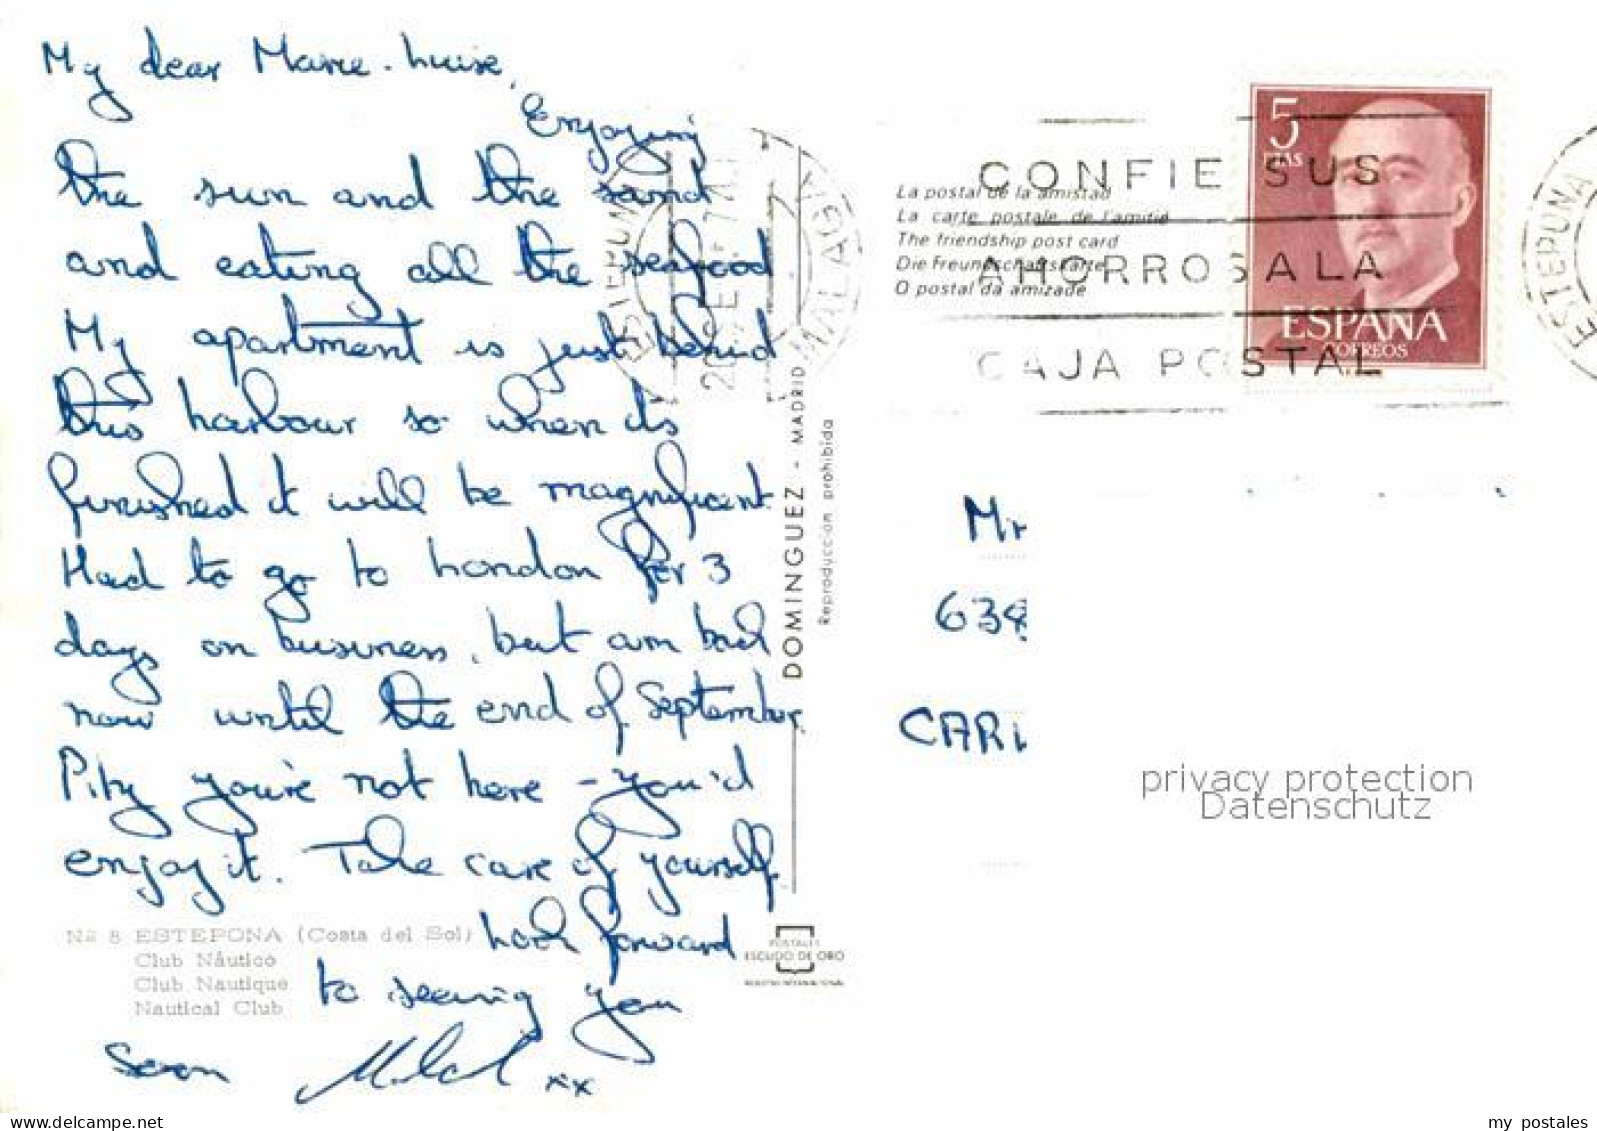 My dear Marie-Luise,
Enjoying
the sun and the sand
and eating all the seafood
My apartment is just behind
this harbour so when its
finished it will be magnificent.
Had to go to London for 3
days on business, but am back
now until the end of September.
Pity you're not here - you'd
enjoy it. Take care of yourself.
Look forward
to seeing you
soon
xx
Nº 8 ESTEPONA (Costa del Sol)
Club Náutico
Club Nautique
Nautical Club
DOMINGUEZ - MADRID
Reproducción prohibida
POSTALES
ESCUDO DE ORO
ESTEPONA
MALAGA
La postal de la amistad
La carte postale de l'amitié
The friendship post card
Die Freundschaftskarte
O postal da amizade
CONFIE SUS
AHORROS A LA
CAJA POSTAL
5
PTAS
ESPAÑA
CORREOS
ESTEPONA
638
privacy protection
Datenschutz
my postales